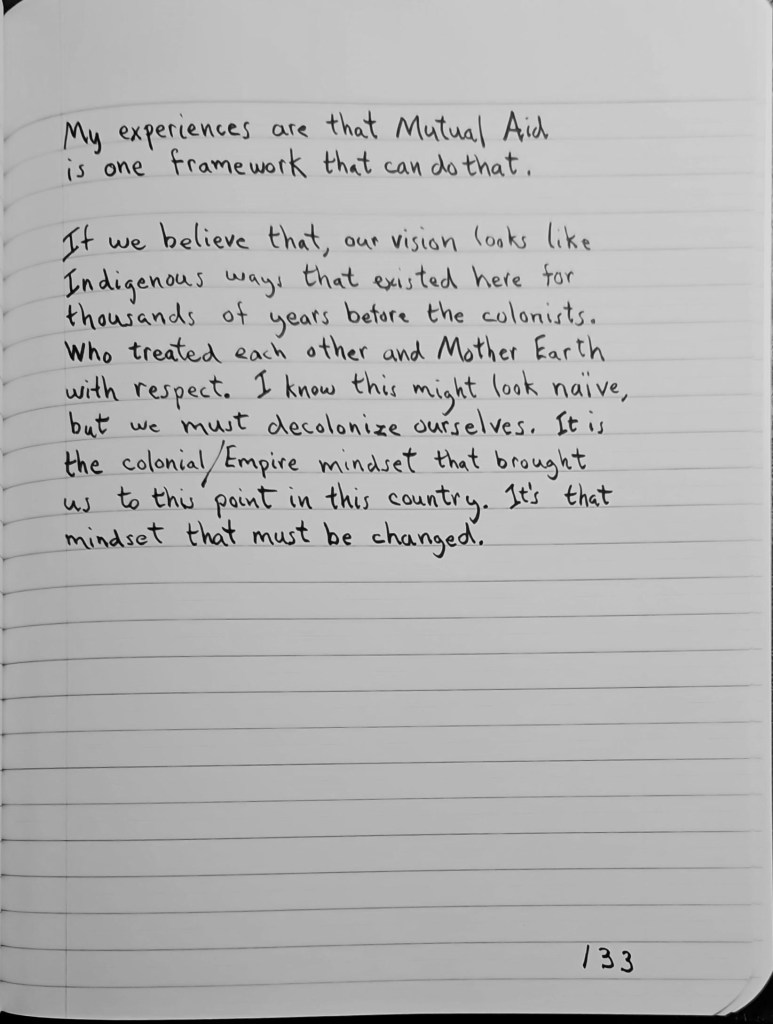 My experiences are that Mutual Aid
is one framework that can do that.
If we believe that, our vision looks like
Indigenous ways that existed here for
thousands of years before the colonists.
Who treated each other and Mother Earth
with respect. I know this might look naïve,
but we must decolonize ourselves. It is
the colonial/Empire mindset that brought
us to this point in this country. It's that
mindset that must be changed.
133